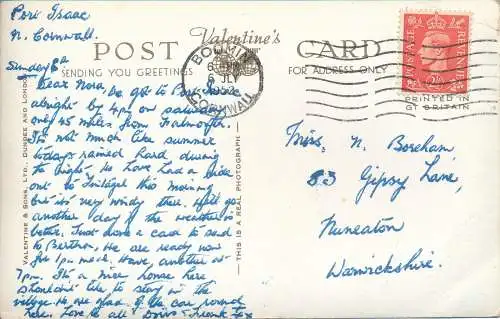 Port Isaac
N. Cornwall.
Sunday 6th
POST Valentine's CARD
SENDING YOU GREETINGS
FOR ADDRESS ONLY
BODMIN
6 JLY
1952
CORNWALL
POSTAGE REVENUE
2½D
PRINTED IN
GT BRITAIN
Dear Nora, We got to Port Isaac
alright by 4pm on Saturday
only 45 miles from Falmouth.
It's not much like summer
today rained hard during
the night. We have had a ride
out to Tintagel this morning
but it's very windy there. We'll go
another day if the weather is
better. Just done a card to send
to Bertha. We are ready now
for 1pm meal. Have another at
7pm. It's a nice house here
shouldn't like to stay in the
village. We are glad of the car round
here. Love to all Doris & Frank xx
VALENTINE & SONS, LTD., DUNDEE AND LONDON
THIS IS A REAL PHOTOGRAPH
Miss. N. Boreham
53 Gipsy Lane,
Nuneaton
Warwickshire.